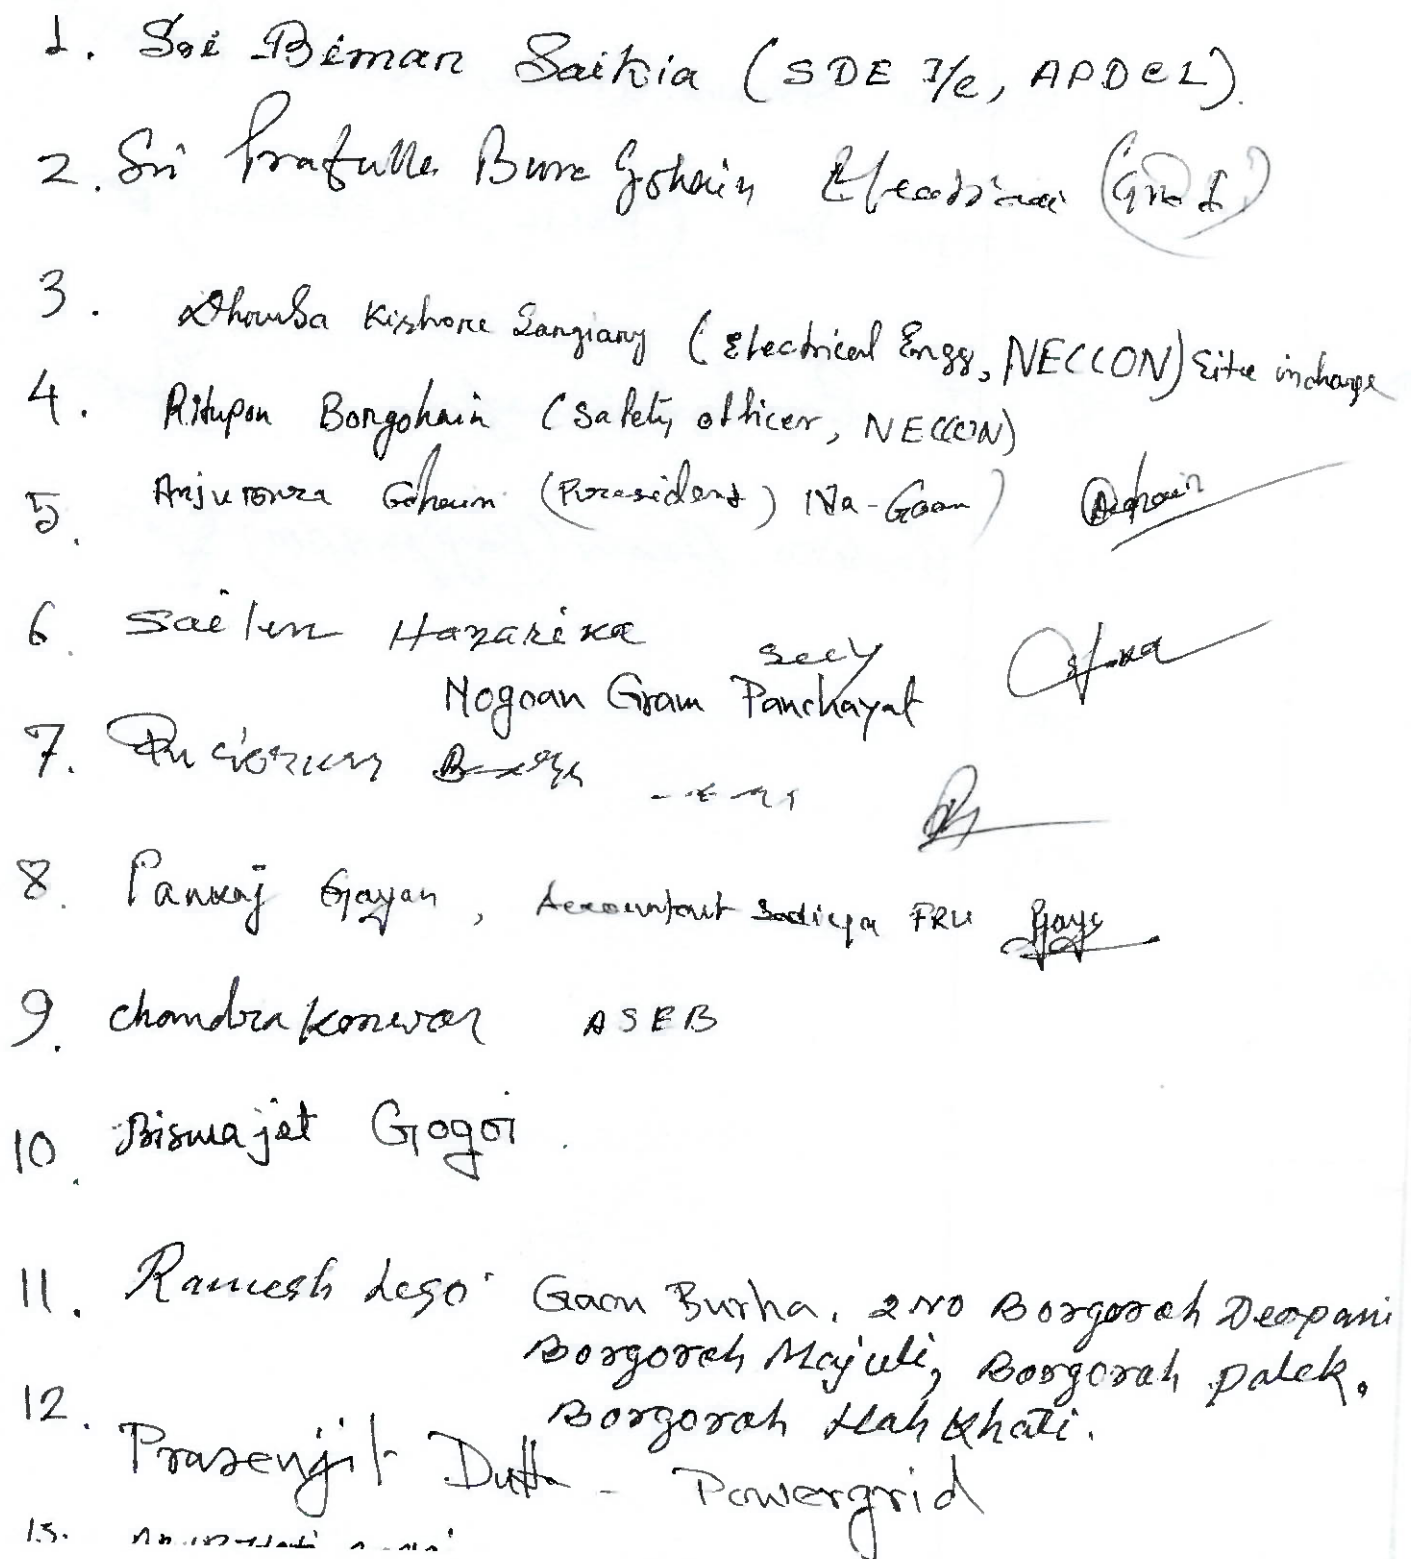 1. Sri Biman Saikia (SDE I/c, APDCL).
2. Sri Prafulla Bura Gohain Electrician (Grd I)
3. Dhruba Kishore Sangiary (Electrical Engg, NECCON) Site incharge
4. Ritupon Borgohain (Safety officer, NECCON)
5. Gohain (President) Na-Gaon)
6. Sailen Hazarika Secy
Nogoan Gram Panchayat
7.
8. Pankaj Gayan, Accountant Sadiya FRU
9. Chandra Konwar ASEB
10. Biswajit Gogoi.
11. Ramesh Lego Gaon Burha, 2 no Borgorah Deopani
Borgorah Majuli, Borgorah Palek,
Borgorah Nah Khati.
12. Prasenjit Dutta - Powergrid